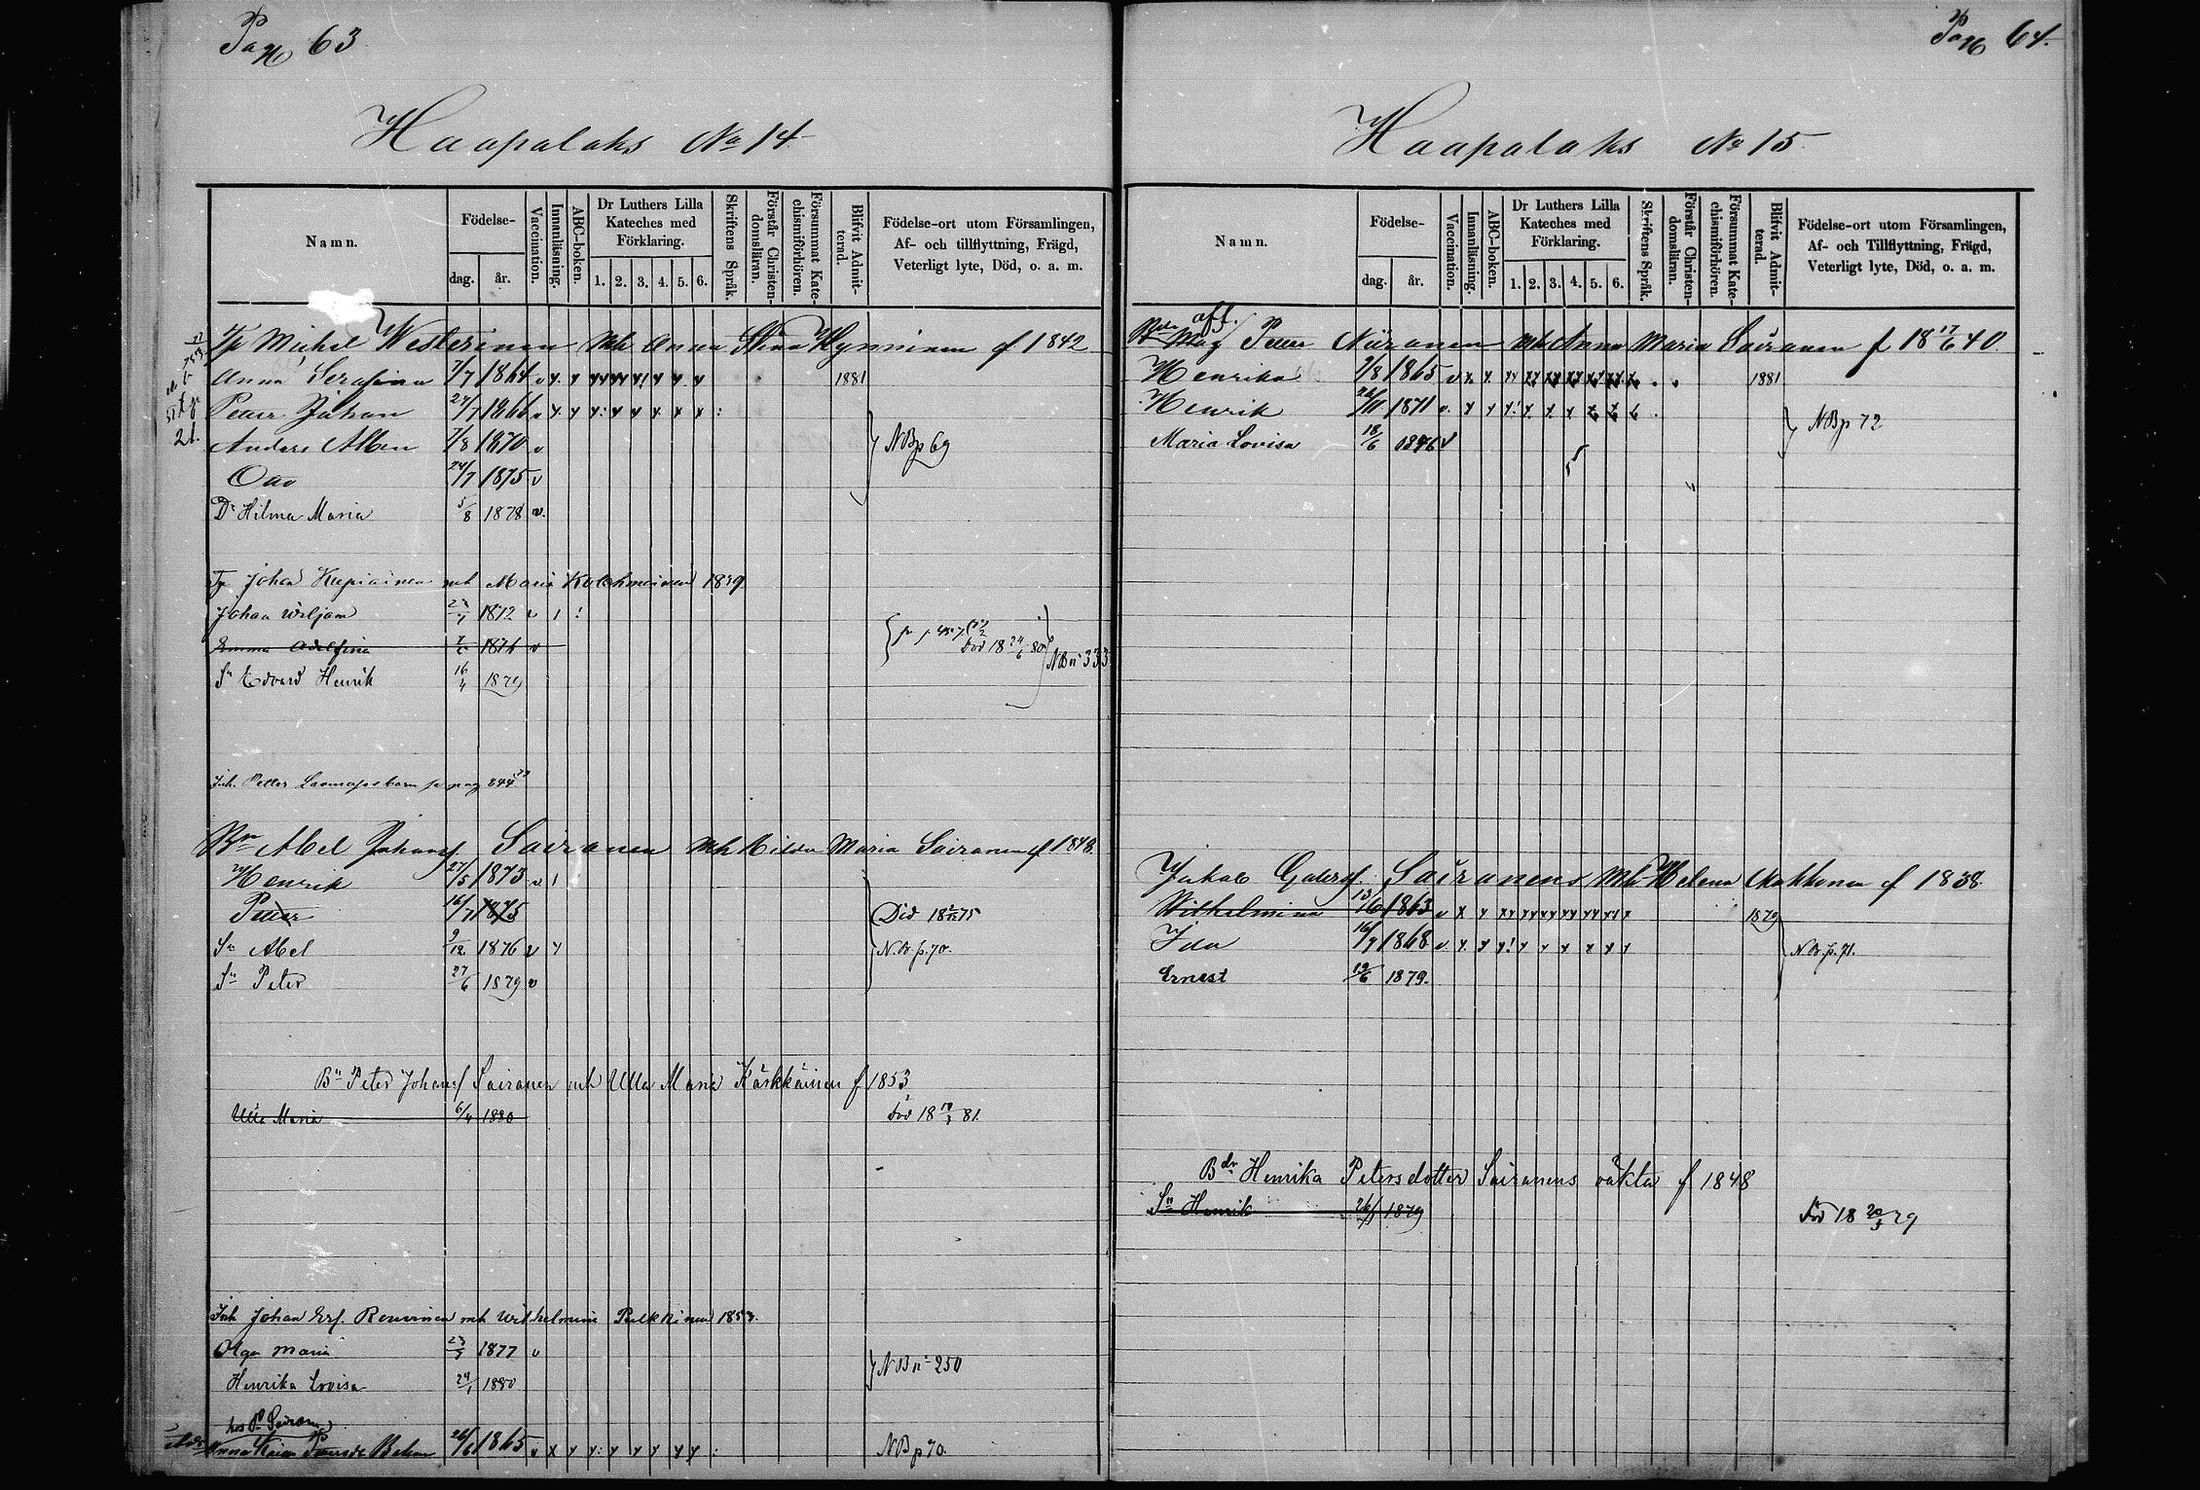 Pag 63
Haapalaks No 14
Namn.
Födelse-
dag.
år.
Vaccination.
Innanläsning.
ABC-boken.
Dr Luthers Lilla
Kateches med
Förklaring.
1. 2. 3. 4. 5. 6.
Skriftens Språk.
Förstår Christen-
domsläran.
Försummat Kate-
chismiförhören.
Blifvit Admit-
terad.
Födelse-ort utom Församlingen,
Af- och tillflyttning, Frägd,
Veterligt lyte, Död, o. a. m.
Michel Westerinen mh Anna Stina Hynninen f 1842
Anna Serafina 7/7 1864 v 1881
Petter Johan 24/7 1866 v
Anders Alben 7/8 1870 v NB p 69
Otto 24/7 1875 v
Dr Hilma Maria 5/8 1878 v.
Johan Kupiainen mh Maria 1839
Johan Wiljam 1872 v
Emma Adolfina 1876 v Död 18 24/6 80
NB n 333
Sn Edvard Henrik 16/4 1879
Inh. Petter barn pag 244
Bn Abel Johansf Sairanen mh Hilda Maria Sairanen f 1848.
Henrik 27/5 1873 v
Petter 16/7 1875 Död 18 75
Sn Abel 9/12 1876 v N.B. p. 70.
Sn Peter 27/6 1879 v
Bn Peter Johansf Sairanen mh Ulla Maria Kärkkäinen f 1853
Ulla Maria 6/4 1880 Död 18 81.
Inh Johan Erf. mh Wilhelmina Pulkkinen 1853.
Olga Maria 1877 v
Henrika Lovisa 24/1 1880 NB n 250
hos Sairanen
Anna 26/6 1865 v NB p 70.
Pag 64.
Haapalaks No 15
Namn.
Födelse-
dag.
år.
Vaccination.
Innanläsning.
ABC-boken.
Dr Luthers Lilla
Kateches med
Förklaring.
1. 2. 3. 4. 5. 6.
Skriftens Språk.
Förstår Christen-
domsläran.
Försummat Kate-
chismiförhören.
Blifvit Admit-
terad.
Födelse-ort utom Församlingen,
Af- och Tillflyttning, Frägd,
Veterligt lyte, Död, o. a. m.
afl.
Måg Petter Niiranen mh Anna Maria Sairanen f 18 17/6 40.
Henrika 1865 v 1881
Henrik 1871 v. NB p 72
Maria Lovisa 18/6 1876
Jakob Gabrsf. Sairanens mh Helena Makkonen f 1838.
Wilhelmina 1863 v 1879
Ida 16/9 1868 v. N.B. p. 71.
Ernest 19/6 1879.
Bdr Henrika Petersdotter Sairanens oäkta f 1848
Sn Henrik 1879 Död 18 20/5 79